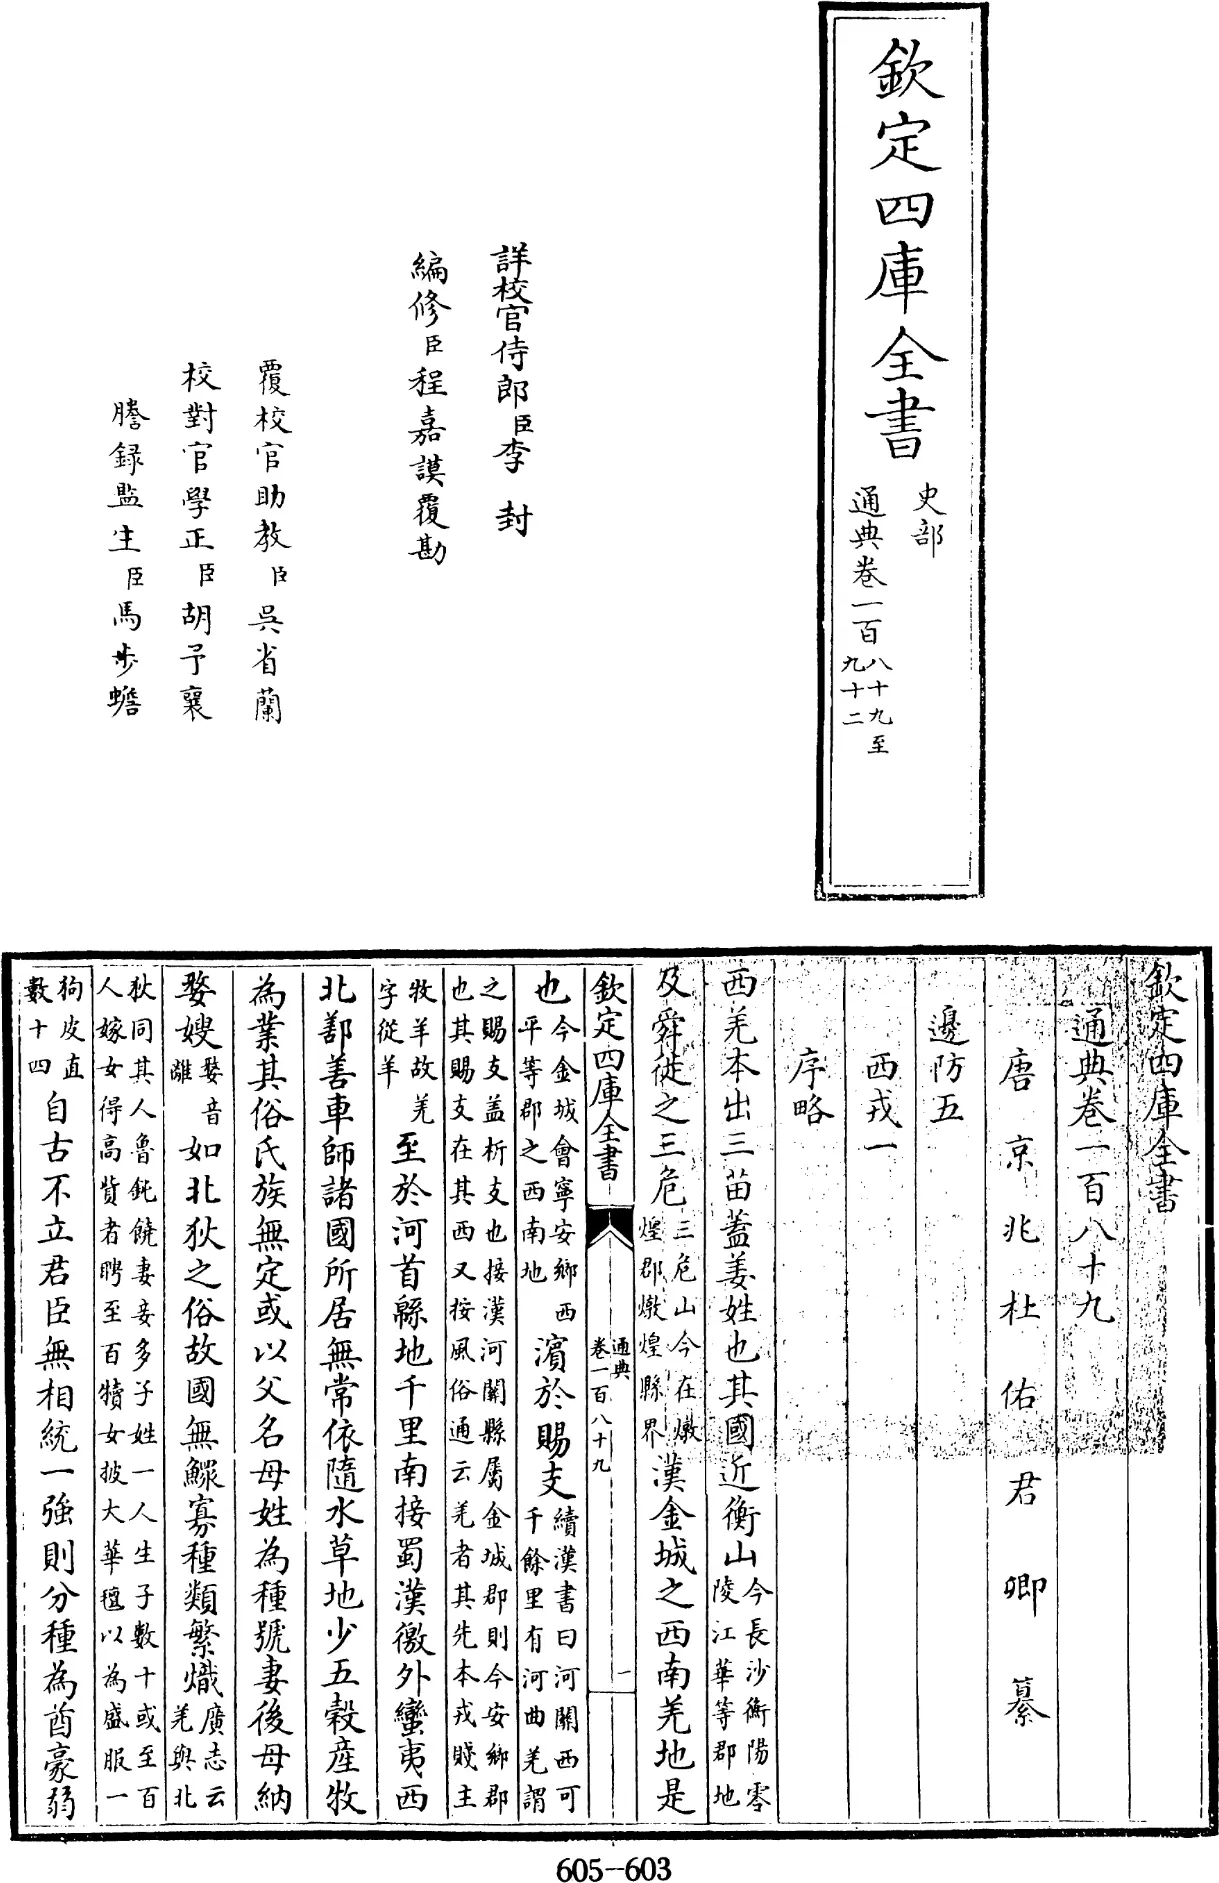 欽定四庫全書
史部
通典卷一百八十九至九十二
詳校官侍郎臣李封
編修臣程嘉謨覆勘
覆校官助教臣吳省蘭
校對官學正臣胡予襄
謄錄監生臣馬步蟾
欽定四庫全書
通典卷一百八十九
唐京兆杜佑君卿纂
邊防五
西戎一
序略
西羌本出三苗蓋姜姓也其國近衡山今長沙衡陽零陵江華等郡地
及舜徙之三危三危山今在燉煌郡燉煌縣界漢金城之西南羌地是
欽定四庫全書
通典
卷一百八十九
一
也今金城會寧安鄉西平等郡之西南地濱於賜支續漢書曰河關西可千餘里有河曲羌謂
之賜支蓋析支也接漢河關縣屬金城郡則今安鄉郡
也其賜支在其西又按風俗通云羌者其先本戎賤主
牧羊故羌字從羊至於河首緜地千里南接蜀漢徼外蠻夷西
北鄯善車師諸國所居無常依隨水草地少五穀產牧
為業其俗氏族無定或以父名母姓為種號妻後母納
嫠嫂嫠音離如北狄之俗故國無鰥寡種類繁熾廣志云羌與北
狄同其人魯鈍饒妻妾多子姓一人生子數十或至百
人嫁女得高貲者聘至百犢女披大華氊以為盛服一
狗皮直數十四自古不立君臣無相統一強則分種為酋豪弱
605-603